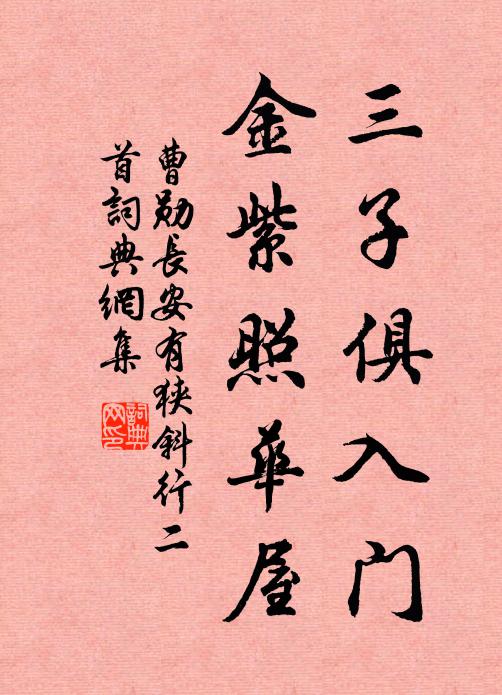 三子俱入门
金紫照華屋
曹勛長安有狹斜行二
首詞典網集
詞典
网印